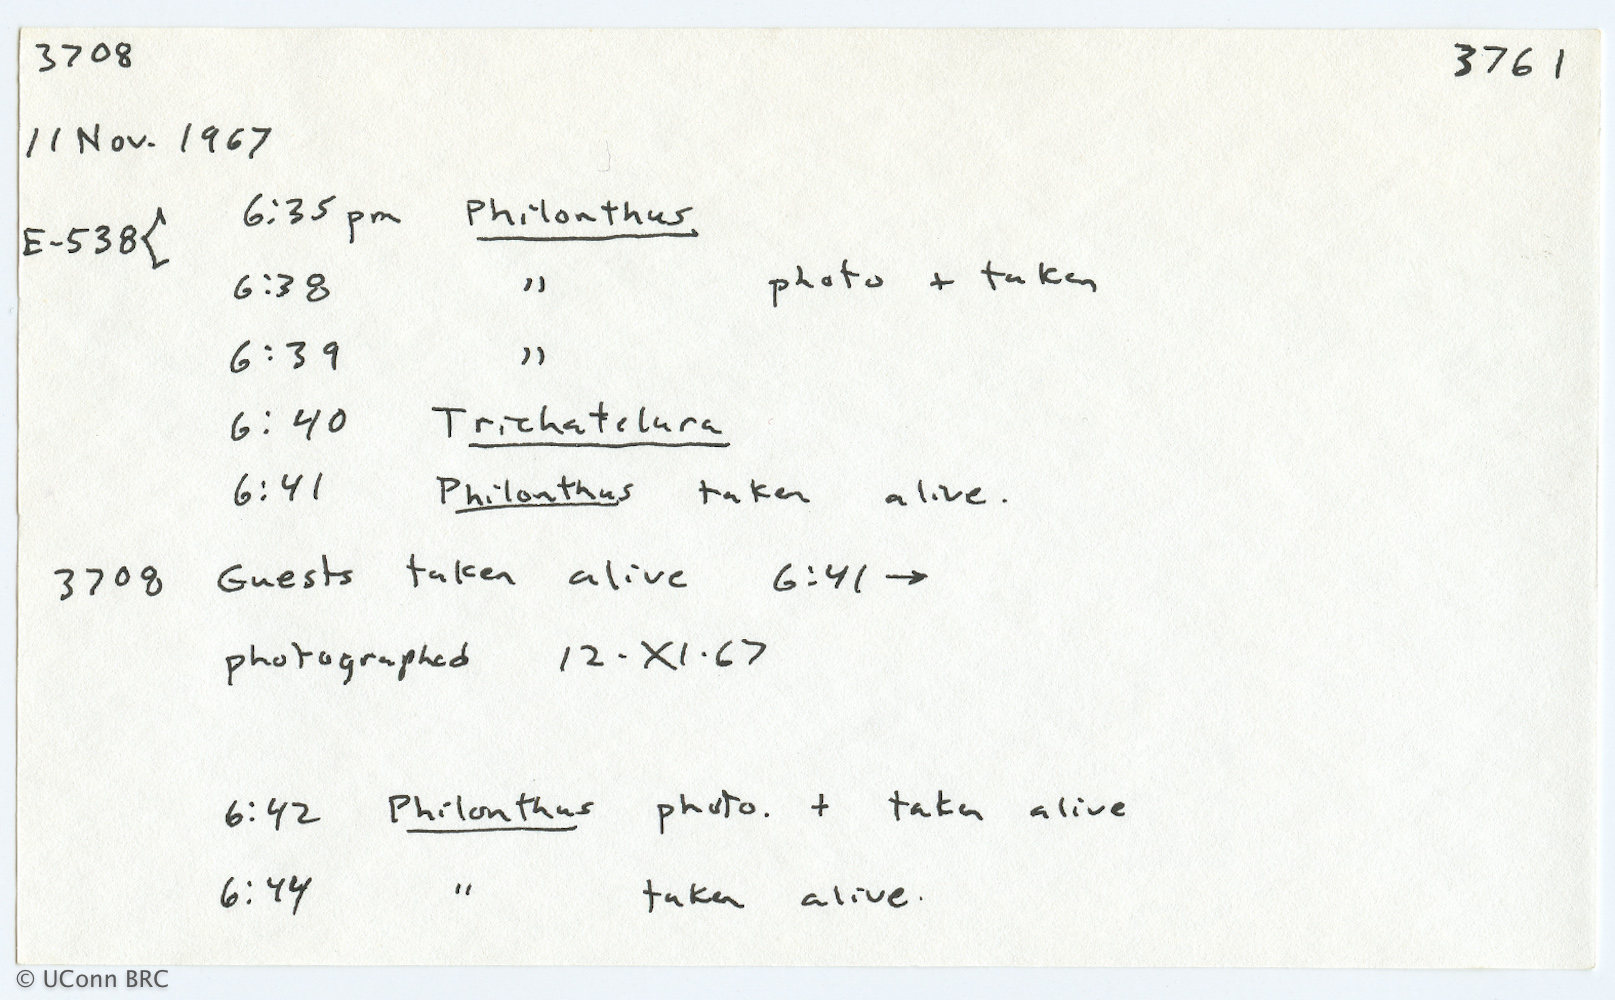 3708 3761
11 Nov. 1967
E-538{ 6:35 pm Philonthus
6:38 " photo + taken
6:39 "
6:40 Trichatelura
6:41 Philonthus taken alive.
3708 Guests taken alive 6:41 →
photographed 12.XI.67
6:42 Philonthus photo. + taken alive
6:44 " taken alive.
© UConn BRC